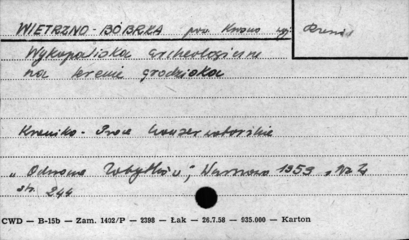 WIETRZNO - BÓBRKA pow. Krosno woj.
Wykopaliska archeologiczne
na terenie grodziska
Kronika - Prace konserwatorskie
„Ochrona Zabytków", Warszawa 1959, Nr 4
str. 244
CWD — B-15b — Zam. 1402/P — 2398 — Łak — 26.7.58 — 935.000 — Karton